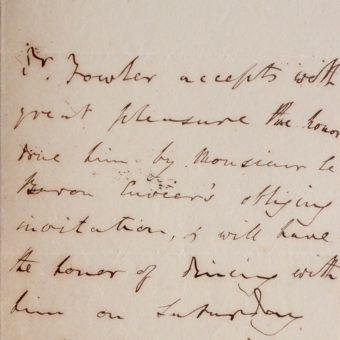 Dr. Fowler accepts with
great pleasure the honor
done him by Monsieur le
Baron Cuvier's obliging
invitation, & will have
the honor of dining with
him on Saturday